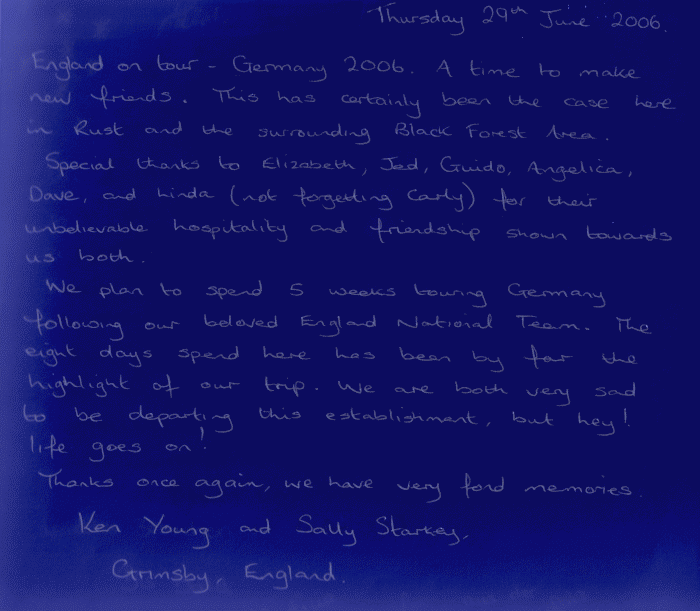 Thursday 29th June 2006.
England on tour - Germany 2006. A time to make
new friends. This has certainly been the case here
in Rust and the surrounding Black Forest Area.
Special thanks to Elizabeth, Jed, Guido, Angelica,
Dave, and Linda (not forgetting Carly) for their
unbelievable hospitality and friendship shown towards
us both.
We plan to spend 5 weeks touring Germany
following our beloved England National Team. The
eight days spend here has been by far the
highlight of our trip. We are both very sad
to be departing this establishment, but hey!
life goes on!
Thanks once again, we have very fond memories.
Ken Young and Sally Starkey,
Grimsby, England.